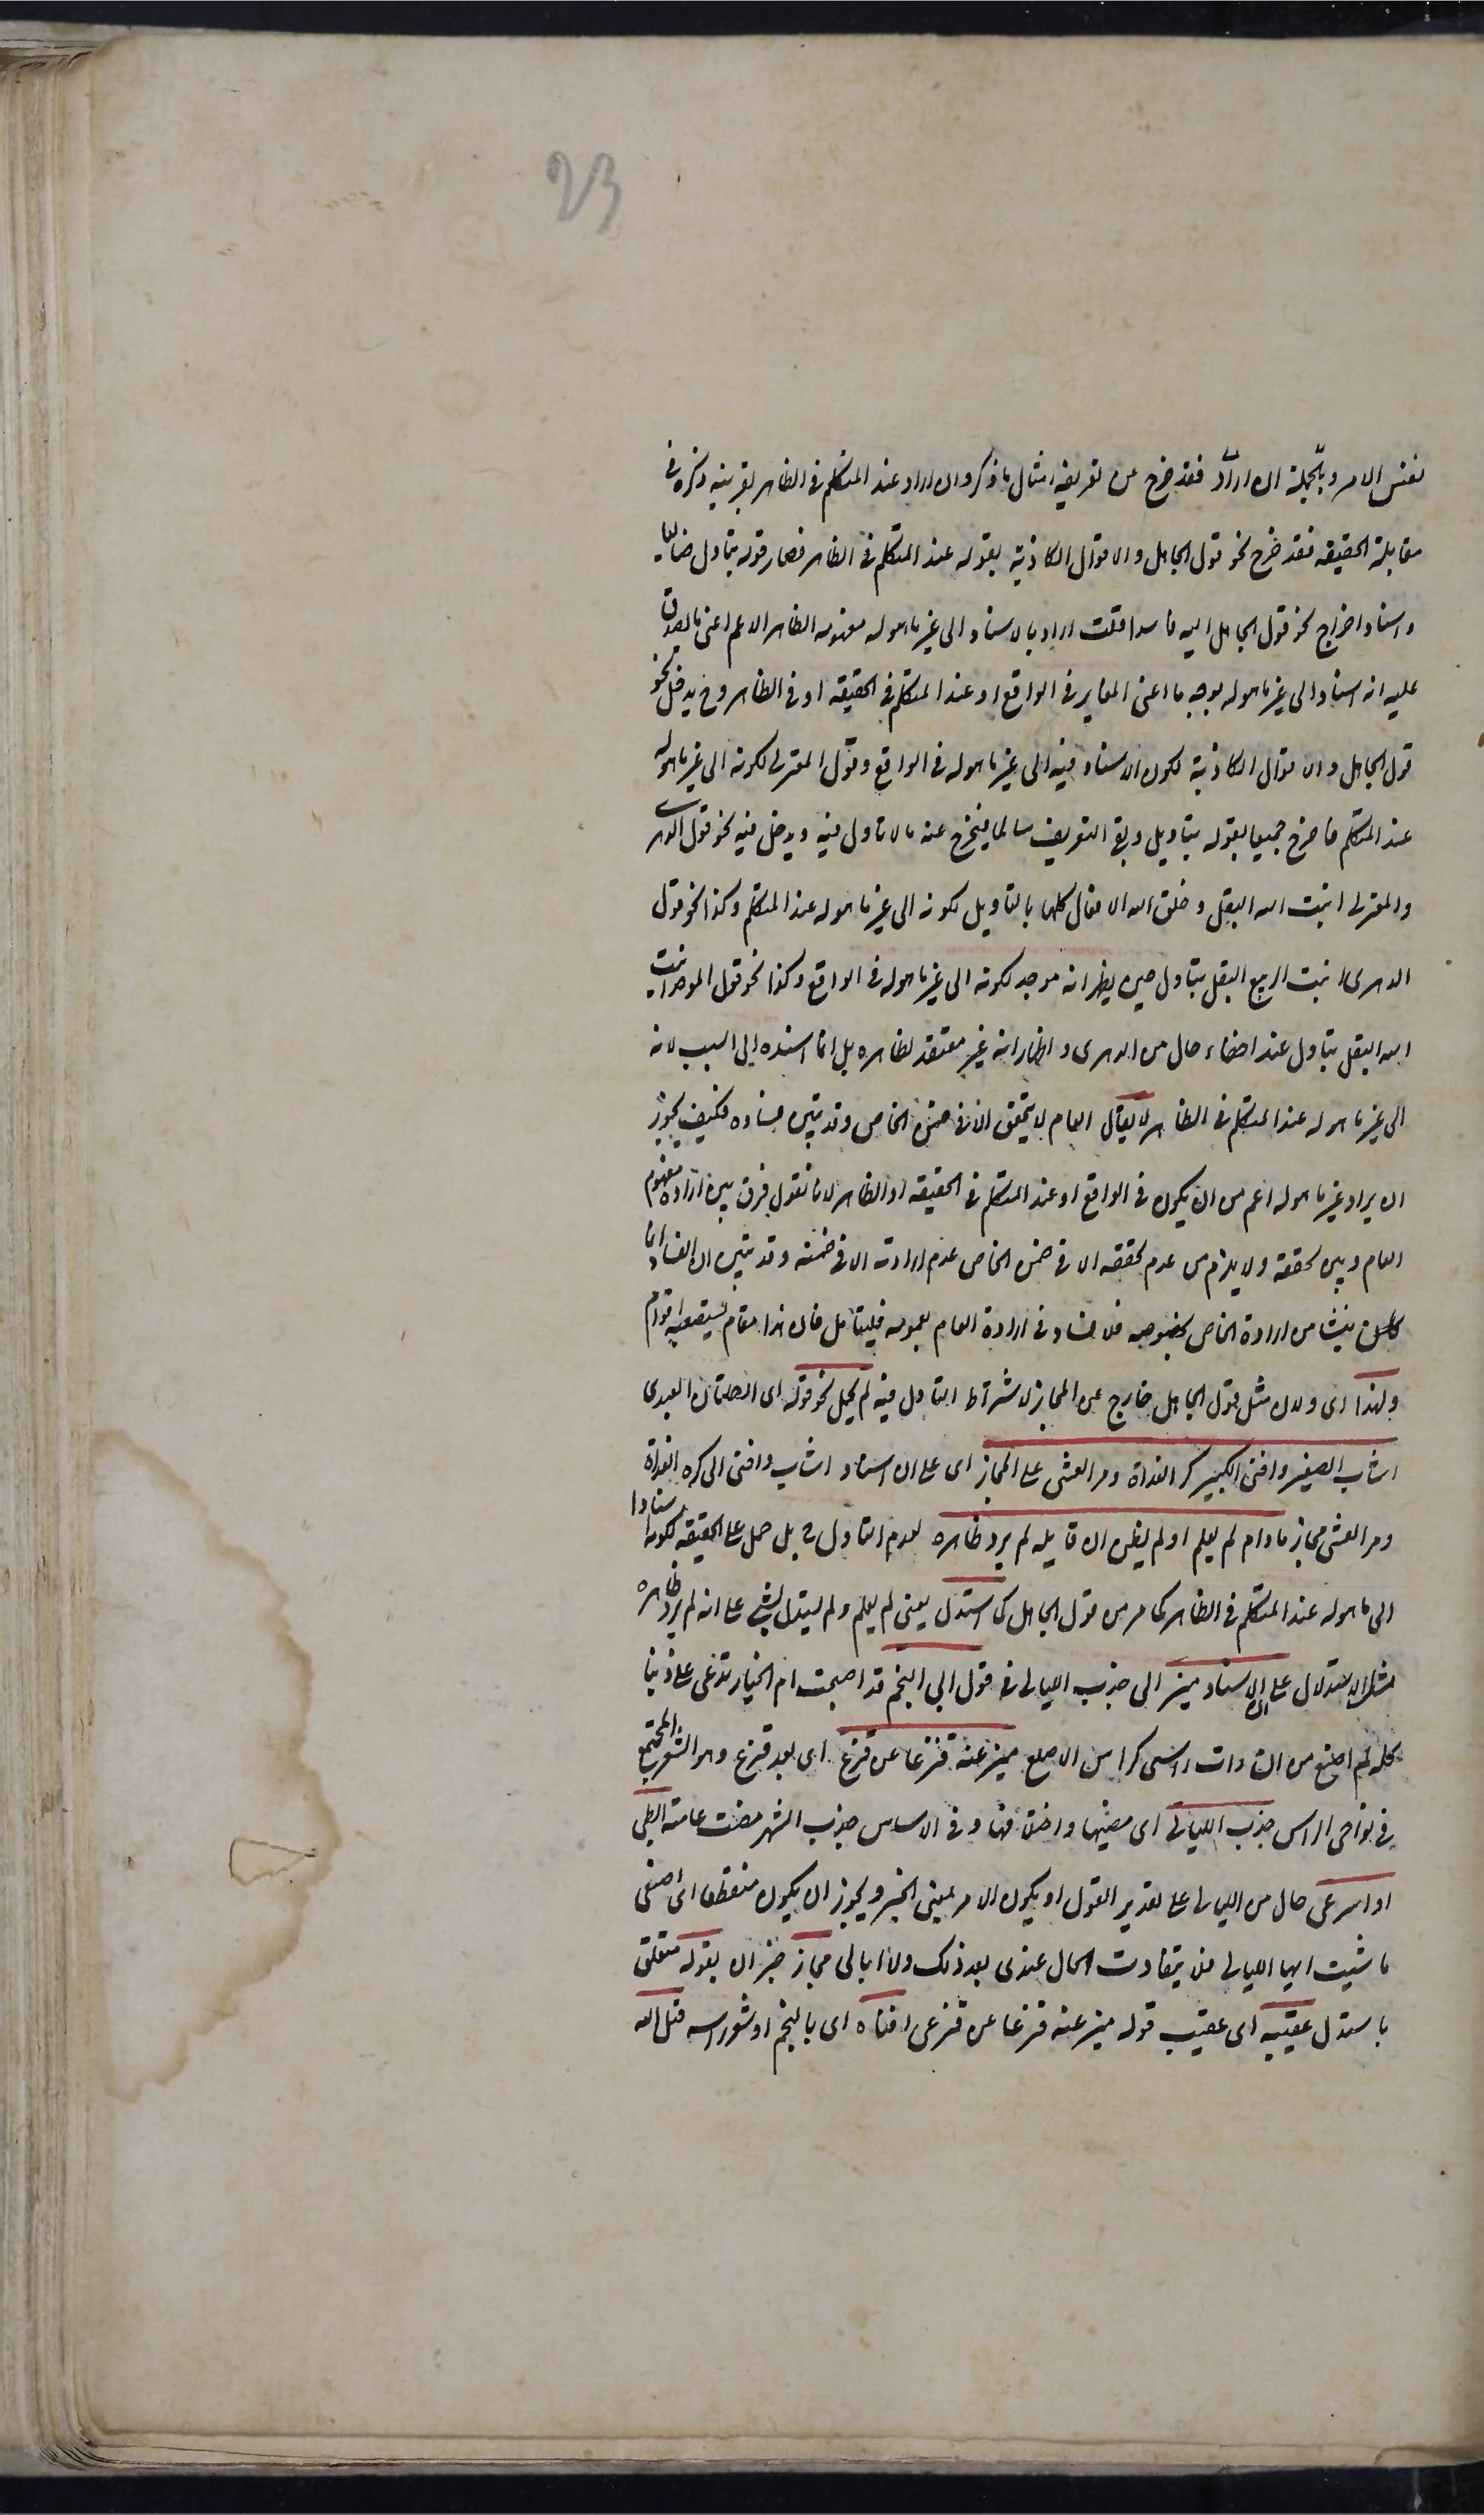 23
نفس الامر وبالجملة ان اراد فقد خرج عن تعريفه امثال ما ذكر وان اراد عند المتكلم فى الظاهر بقرينة ذكره فى
مقابلة الحقيقه فقد خرج نحو قول الجاهل والاقوال الكاذبة بقوله عند المتكلم فى الظاهر فصار قوله بتأول ضايعا
واسناد اخراج نحو قول الجاهل اليه فاسدا قلت اراد بالاسناد الى غير ما هو له مفهومه الظاهر الاعم اعنى ما يصدق
عليه انه اسناد الى غير ما هو له بوجه ما اعنى المغاير فى الواقع او عند المتكلم فى الحقيقه او فى الظاهر وح يدخل نحو
قول الجاهل والاقوال الكاذبة لكون الاسناد فيه الى غير ما هو له فى الواقع وقول المعتزلى لكونه الى غير ما هو له
عند المتكلم فاخرج جميعا بقوله بتاويل وبقى التعريف سالما فيخرج عنه ما لا تاول فيه ويدخل فيه نحو قول الدهرى
والمعتزلى انبت الله البقل وخلق الله الافعال كلها بالتاويل لكونه الى غير ما هو له عند المتكلم وكذا نحو قول
الدهرى انبت الربيع البقل بتاول حين يظهر انه موحد لكونه الى غير ما هو له فى الواقع وكذا نحو قول الموحد انبت
الله البقل بتاول عند اخفاء حال من الدهرى واظهار انه غير معتقد لظاهره بل انما اسنده الى السبب لانه
الى غير ما هو له عند المتكلم فى الظاهر لا يقال العام لا يتحقق الا فى ضمن الخاص وقد تبين فساده فكيف يجوز
ان يراد غير ما هو له اعم من ان يكون فى الواقع او عند المتكلم فى الحقيقه او الظاهر لانا نقول فرق بين ارادة مفهوم
العام وبين تحققه ولا يلزم من عدم تحققه الا فى ضمن الخاص عدم ارادته الا فى ضمنه وقد تبين ان الفساد انما
كان ينشا من ارادة الخاص بخصوصه فلا فساد فى ارادة العام بعمومه فليتامل فان هذا مقام يستصعبه اقوام
ولهذا اى ولان مثل قول الجاهل خارج عن المجاز لاشتراط التاول فيه لم يحمل نحو قوله اى الصلتان العبدى
اشاب الصغير وافنى الكبير كر الغداة ومر العشى على المجاز اى على ان اسناد اشاب وافنى الى كر الغداة
ومر العشى مجاز مادام لم يعلم او لم يظن ان قايله لم يرد ظاهره لعدم التاول ح بل حمل على الحقيقه لكونه اسنادا
الى ما هو له عند المتكلم فى الظاهر كما مر من قول الجاهل كما استدل يعنى لم يعلم ولم يستدل بشئ على انه لم يرد ظاهره
مثل الاستدلال على ان اسناد ميز الى جذب الليالى فى قول ابى النجم قد اصبحت ام الخيار تدعى على ذنبا
كله لم اصنع من ان رات راسى كراس الاصلع ميز عنه قنزعا عن قنزع اى بعد قنزع وهو الشعر المجتمع
فى نواحى الراس جذب الليالى اى مضيها واختلافها وفى الاساس جذب الشهر مضت عامته ابطى
او اسرعى حال من الليالى على تقدير القول او يكون الامر بمعنى الخبر ويجوز ان يكون منقطعا اى اصنعى
ما شيت ايها الليالى فلن يتفاوت الحال عندى بعد ذلك ولا ابالى مجاز خبر ان بقوله متعلق
باستدل عقيبه اى عقيب قوله ميز عنه قنزعا عن قنزع افناه اى ابا النجم او شعر راسه قيل الله